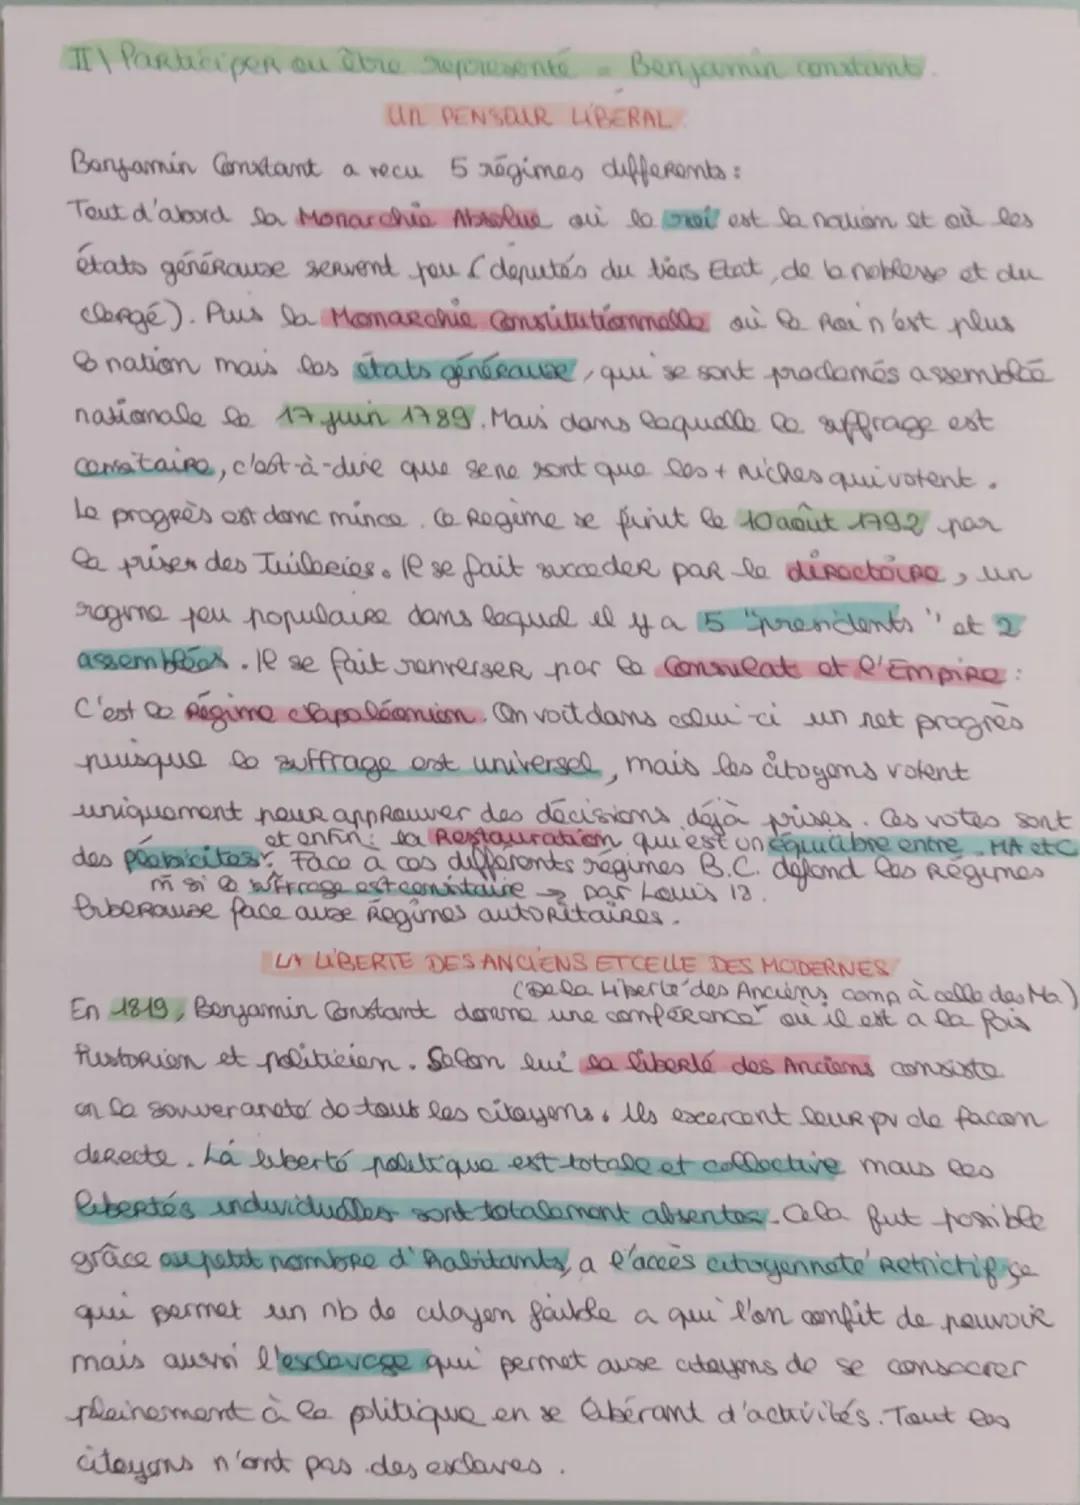 II \ Participer ou être représenté = Benjamin constant.
UN PENSEUR LIBERAL
Benjamin Constant a recu 5 régimes differents :
Tout d'abord la Monarchie Absolue où le roi est la nation et où les
états généraux servent peu (députés du tiers Etat, de la noblesse et du
clergé). Puis la Monarchie constitutionnelle où le Roi n'est plus
la nation mais les états généraux, qui se sont proclamés assemblée
nationale le 17 juin 1789. Mais dans laquelle le suffrage est
censitaire, c'est-à-dire que se ne sont que les + riches qui votent.
Le progrès est donc mince. Ce Régime se finit le 10 août 1792 par
la prise des Tuileries. Il se fait succeder par le directoire, un
régime peu populaire dans lequel il y a 5 "présidents" et 2
assemblées. Il se fait renverser par le Consulat et l'Empire :
C'est le Régime Napoléonien. On voit dans celui-ci un net progrès
puisque le suffrage est universel, mais les citoyens votent
uniquement pour approuver des décisions déjà prises. Ces votes sont
et enfin : la Restauration qui est un équilibre entre MA et C
des plébicites. Face a ces différents régimes B.C. défend les Régimes
m̂ si le suffrage est censitaire → par Louis 18.
liberaux face aux Régimes autoritaires.
LA LIBERTE DES ANCIENS ET CELLE DES MODERNES
(De la Liberté des Anciens comp à celle des Mo)
En 1819, Benjamin Constant donne une conférence où il est a la fois
historien et politicien. Selon lui la liberté des Anciens consiste
en la souveraneté de tout les citoyens. Ils excercent leur pv de facon
directe. La liberté politique est totale et collective mais les
libertés individuelles sont totalement absentes. Cela fut possible
grâce au petit nombre d'habitants, a l'accès citoyenneté retrictif ce
qui permet un nb de citoyen faible a qui l'on confit de pouvoir
mais aussi l'esclavage qui permet aux citoyens de se consacrer
pleinement à la politique en se libérant d'activités. Tout les
citoyens n'ont pas des esclaves.